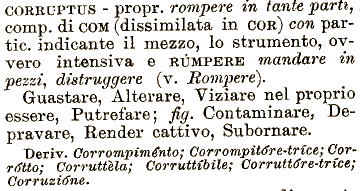 CORRUPTUS - propr. rompere in tante parti,
comp. di COM (dissimilata in COR) con par-
tic. indicante il mezzo, lo strumento, ov-
vero intensiva e RÚMPERE mandare in
pezzi, distruggere (v. Rompere).
Guastare, Alterare, Viziare nel proprio
essere, Putrefare; fig. Contaminare, De-
pravare, Render cattivo, Subornare.
Deriv. Corrompiménto; Corrompitóre-trice; Cor-
rótto; Corruttèla; Corruttíbile; Corruttóre-trice;
Corruzióne.